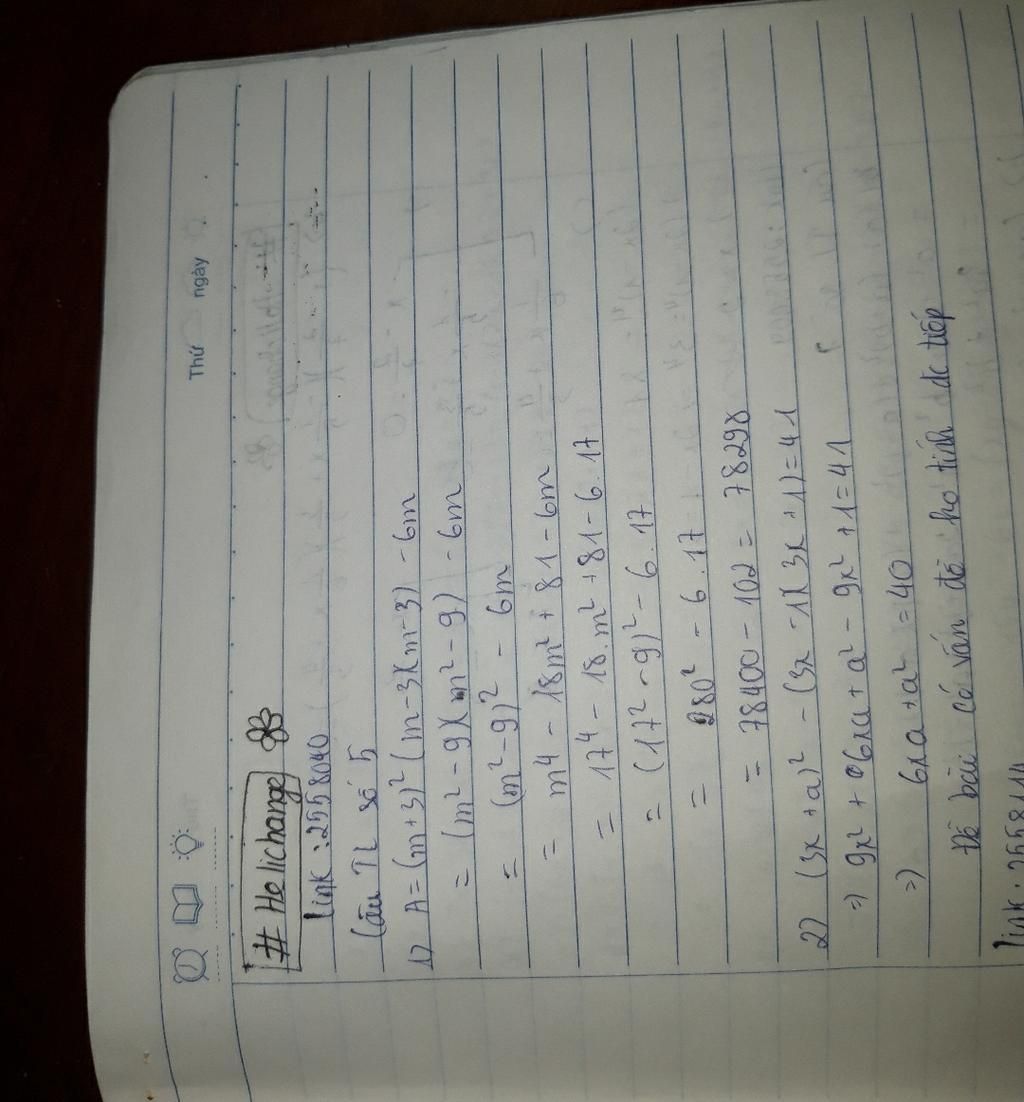 Thứ ngày
# Helichange
link : 2558040
Câu TL số 5
1) A = (m+3)² (m-3)(m-3) - 6m
= (m² - 9)(m² - 9) - 6m
= (m² - 9)² - 6m
= m⁴ - 18m² + 81 - 6m
= 17⁴ - 18.m² + 81 - 6.17
= (17² - 9)² - 6.17
= 280² - 6.17
= 78400 - 102 = 78298
2) (3x + a)² - (3x - 1)(3x + 1) = 41
=> 9x² + 6xa + a² - 9x² + 1 = 41
=> 6xa + a² = 40
Đề bài có vấn đề ko tính đc tiếp
link : 2558114